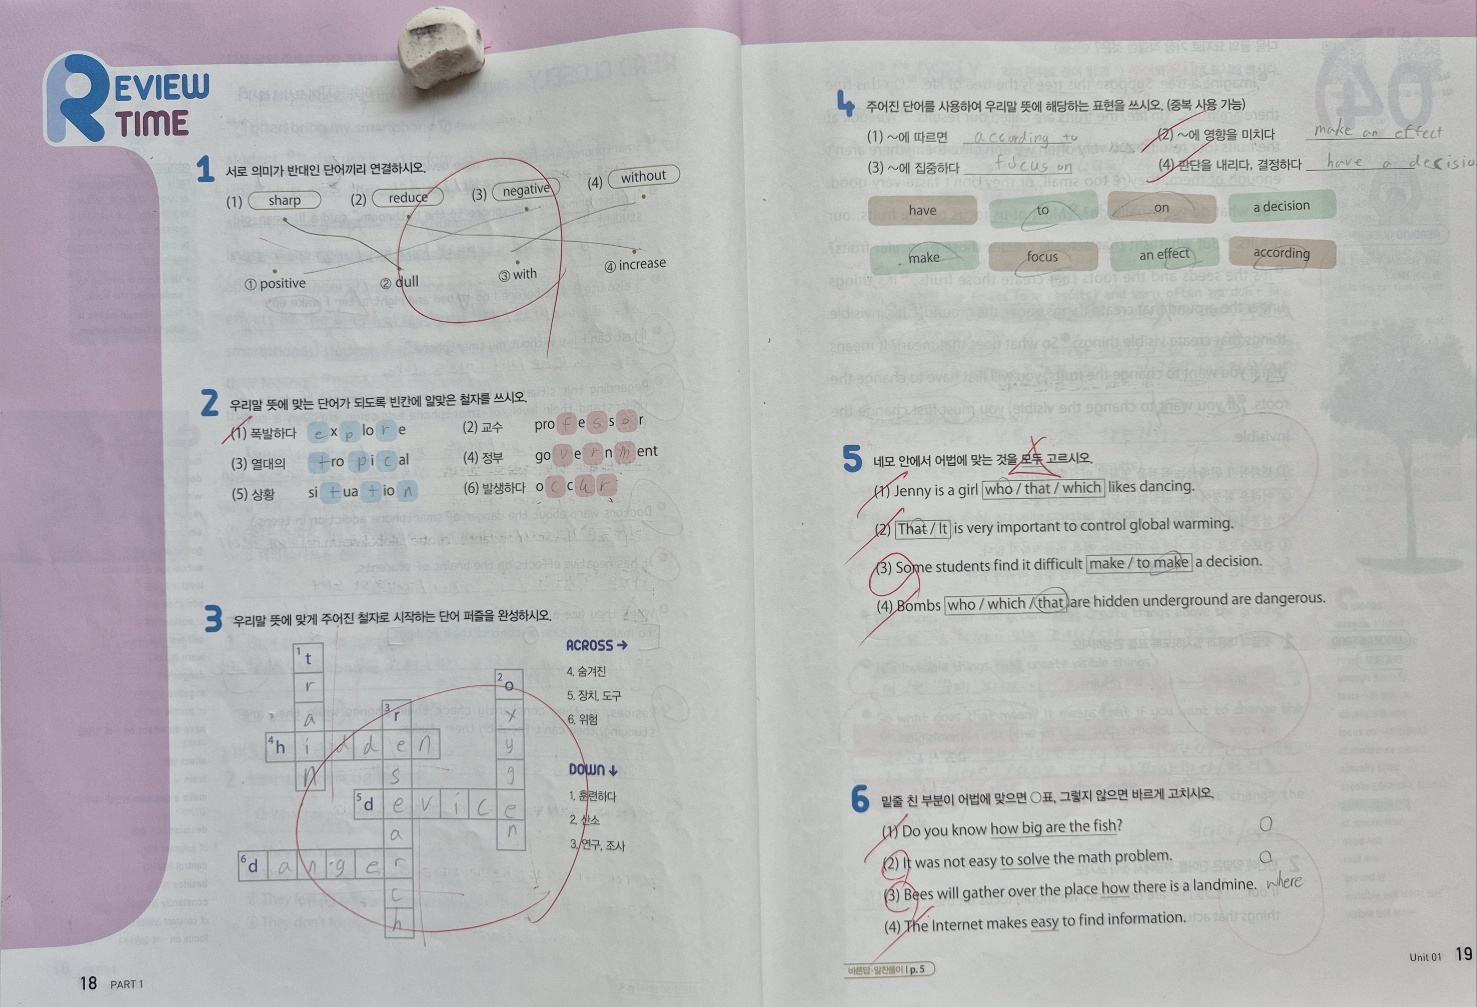 REVIEW
TIME
1 서로 의미가 반대인 단어끼리 연결하시오.
(1) sharp (2) reduce (3) negative (4) without
① positive ② dull ③ with ④ increase
2 우리말 뜻에 맞는 단어가 되도록 빈칸에 알맞은 철자를 쓰시오.
(1) 폭발하다 explore (2) 교수 professor
(3) 열대의 tropical (4) 정부 government
(5) 상황 situation (6) 발생하다 occur
3 우리말 뜻에 맞게 주어진 철자로 시작하는 단어 퍼즐을 완성하시오.
1 train
2 oxygen
3 research
4 hidden
5 device
6 danger
ACROSS →
4. 숨겨진
5. 장치, 도구
6. 위험
DOWN ↓
1. 훈련하다
2. 산소
3. 연구, 조사
18 PART 1
4 주어진 단어를 사용하여 우리말 뜻에 해당하는 표현을 쓰시오. (중복 사용 가능)
(1) ~에 따르면 according to (2) ~에 영향을 미치다 make an effect
(3) ~에 집중하다 focus on (4) 판단을 내리다, 결정하다 have a decisio
have to on a decision
make focus an effect according
5 네모 안에서 어법에 맞는 것을 모두 고르시오.
(1) Jenny is a girl who / that / which likes dancing.
(2) That / It is very important to control global warming.
(3) Some students find it difficult make / to make a decision.
(4) Bombs who / which / that are hidden underground are dangerous.
6 밑줄 친 부분이 어법에 맞으면 ○표, 그렇지 않으면 바르게 고치시오.
(1) Do you know how big are the fish? O
(2) It was not easy to solve the math problem. O
(3) Bees will gather over the place how there is a landmine. where
(4) The Internet makes easy to find information.
바른답·알찬풀이 p. 5
Unit 01 19